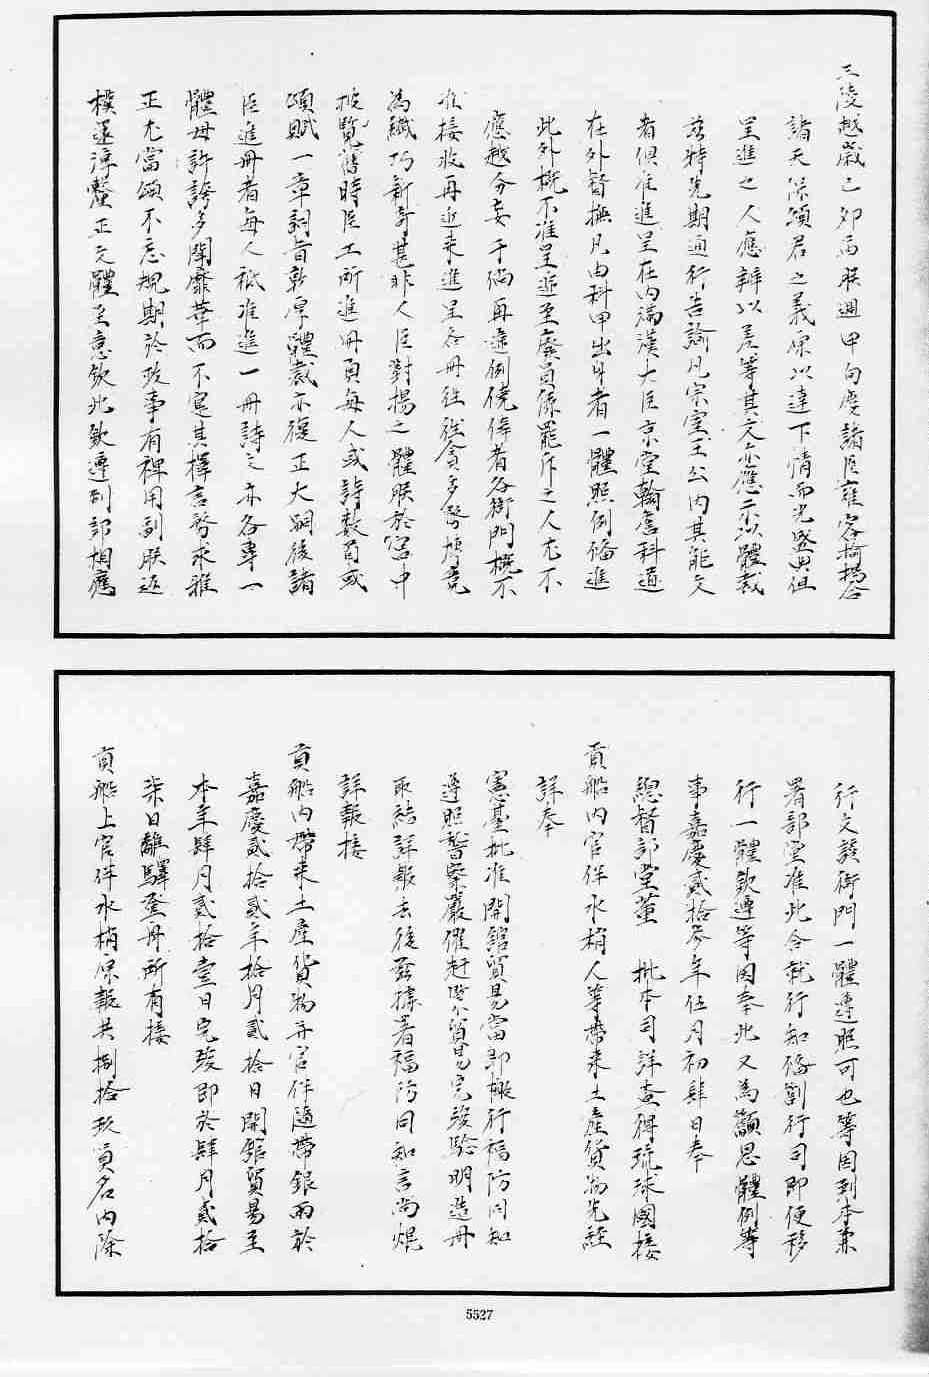 三陵越歲己卯爲朕週甲旬慶諸臣雍容揄揚合
諸天保頌君之義原以達下情而光盛典但
呈進之人應辨以差等其文亦應示以體裁
茲特先期通行告諭凡宗室王公內其能文
者俱准進呈在內滿漢大臣京堂翰詹科道
在外督撫凡由科甲出身者一體照例備進
此外概不准呈遞至廢員係罷斥之人尤不
應越分妄干倘再違例僥倖者各衙門概不
准接收再近來進呈各冊往往貪多務博竟
爲纖巧新奇甚非人臣對揚之體朕於宮中
披覽舊時臣工所進冊頁每人或詩數首或
頌賦一章詞旨敦厚體裁亦復正大嗣後諸
臣進冊者每人祗准進一冊詩文亦各專一
體毋許誇多鬬靡華而不寔其擇言務求雅
正尤當頌不忘規期於政事有裨用副朕返
樸還淳釐正文體至意欽此欽遵到部相應
行文該衙門一體遵照可也等因到本兼
署部堂准此合就行知備劄行司即便移
行一體欽遵等因奉此又爲籲恩體例等
事嘉慶貳拾參年伍月初肆日奉
總督部堂董 批本司詳查得琉球國接
貢船內官伴水梢人等帶來土產貨物先經
詳奉
憲臺批准開館貿易當即檄行福防同知
遵照警察嚴催趕緊貿易完竣驗明造冊
取結詳報去後茲據署福防同知言尚焜
詳報接
貢船內帶來土產貨物并官伴隨帶銀兩於
嘉慶貳拾貳年拾月貳拾日開館貿易至
本年肆月貳拾壹日完竣即於肆月貳拾
柒日離驛登舟所有接
貢船上官伴水梢原報共捌拾玖員名內除
5527